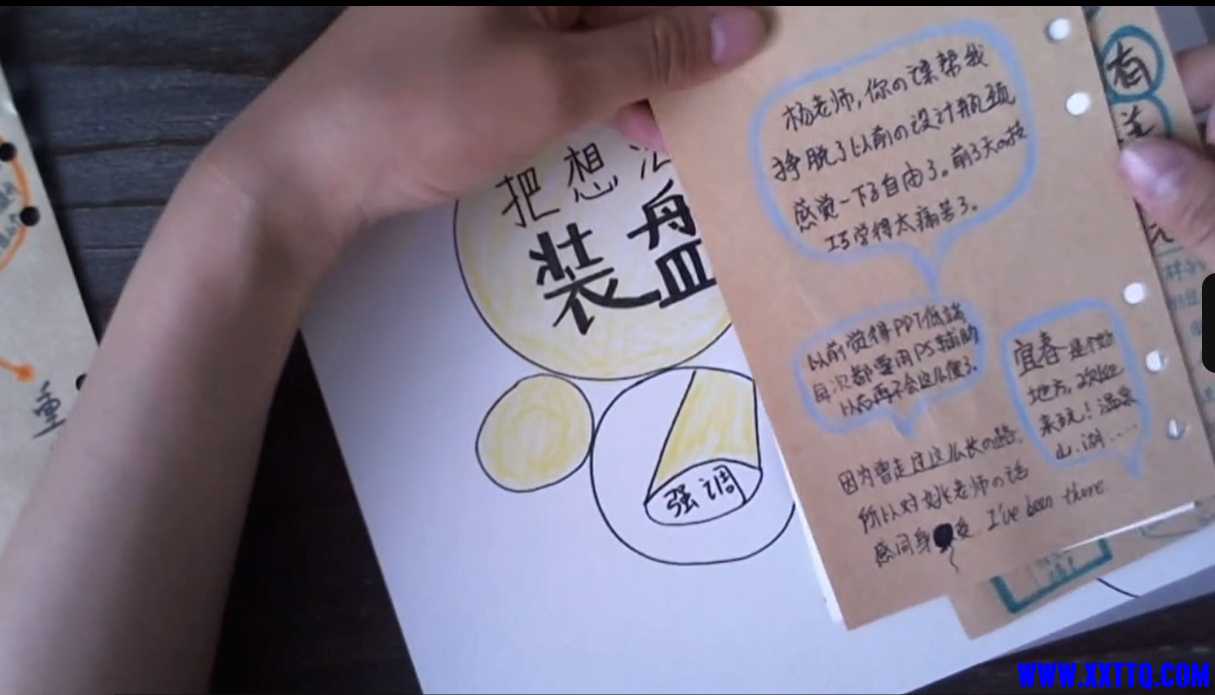 把想
装盘
强调
重
杨老师,你の课帮我
挣脱了以前の设计瓶颈
感觉一下子自由了。前3天の技
巧学得太痛苦了。
以前觉得PPT低端
每次都要用PS辅助
以后再不会这么傻了。
宜春是个好
地方,欢迎
来玩!温泉
山、湖....
因为曾走过这么长の路,
所以对姚老师の话
感同身受 I've been there.
有
WWW.XXTTQ.COM